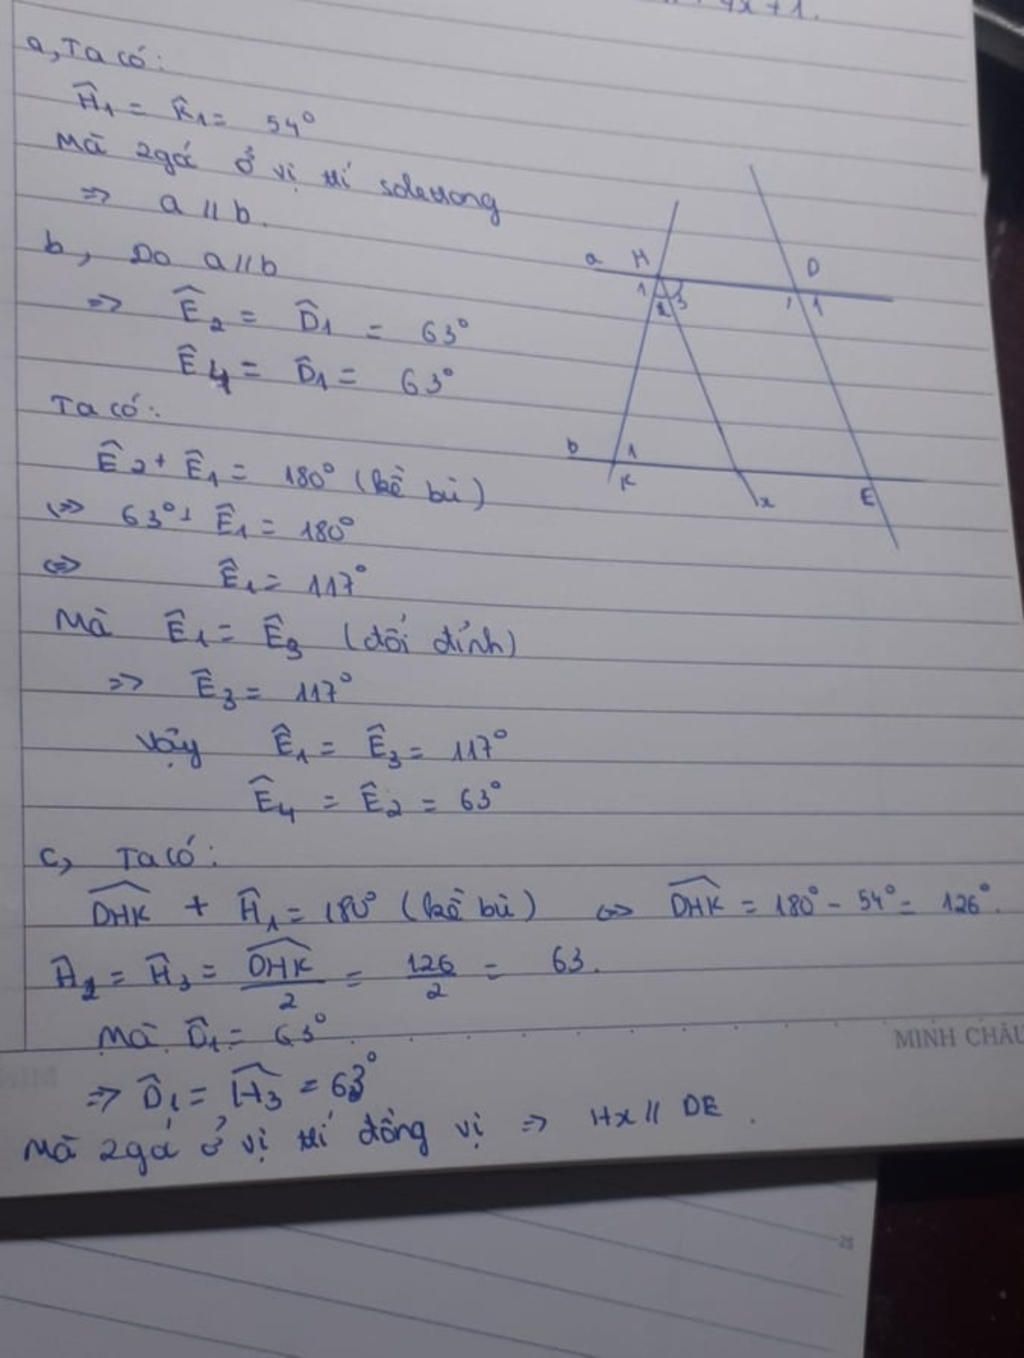 4x+1.
a, Ta có:
Ĥ₁ = K̂₁ = 54°
Mà 2góc ở vị trí soletrong
=> a // b.
b, Do a//b
=> Ê₂ = D̂₁ = 63°
Ê₄ = D̂₁ = 63°
Ta có:
Ê₂ + Ê₁ = 180° (kề bù)
<=> 63° + Ê₁ = 180°
<=> Ê₁ = 117°
Mà Ê₁ = Ê₃ (đối đỉnh)
=> Ê₃ = 117°
Vậy Ê₁ = Ê₃ = 117°
Ê₄ = Ê₂ = 63°
c, Ta có:
DHK + Ĥ₁ = 180° (kề bù) <=> DHK = 180° - 54° = 126°.
Ĥ₂ = Ĥ₃ = DHK/2 = 126/2 = 63.
Mà D̂₁ = 63°
=> D̂₁ = Ĥ₃ = 63°
Mà 2góc ở vị trí đồng vị => Hx // DE.
a H D
1 2 3 1 1
b 1
K x E
MINH CHÂU
25